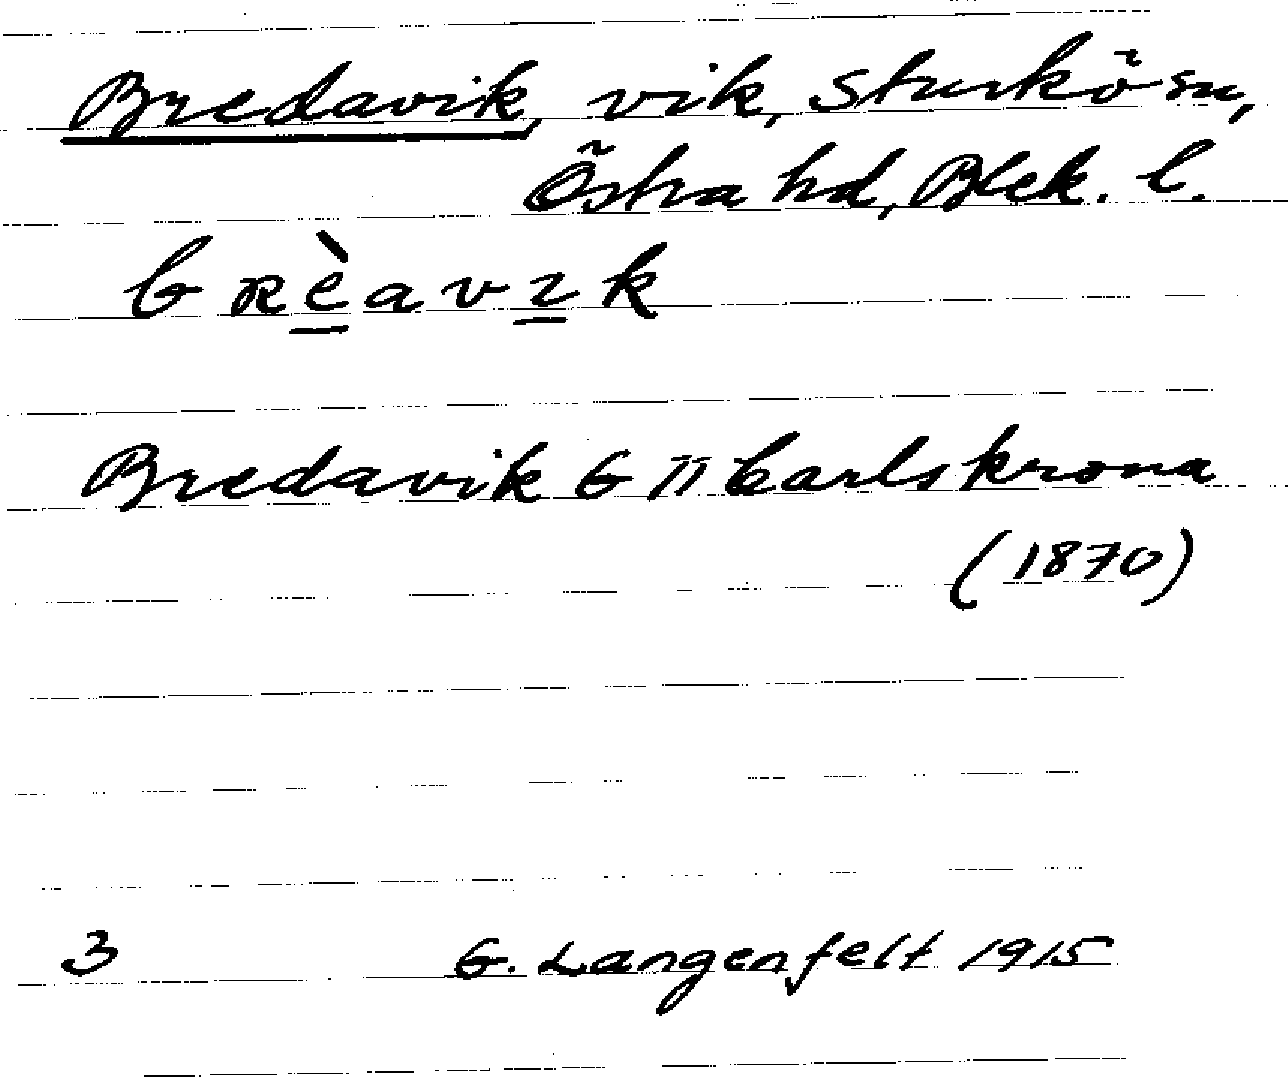 Bredavik, vik, Sturkö sn,
Östra hd, Blek. l.
brèavık
Bredavik G II Carlskrona
(1870)
3 G. Langenfelt 1915